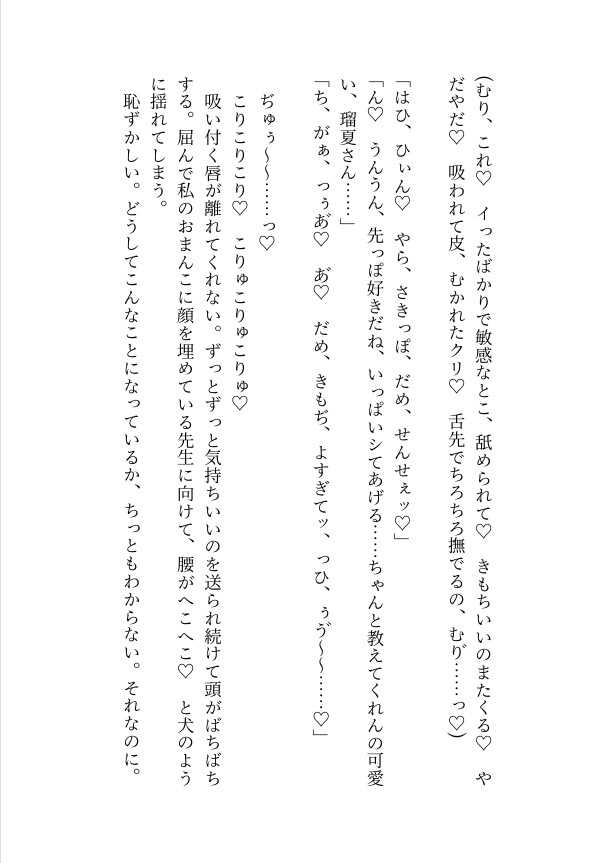 (むり、これ♡　イったばかりで敏感なとこ、舐められて♡　きもちいいのまたくる♡　や
だやだ♡　吸われて皮、むかれたクリ♡　舌先でちろちろ撫でるの、むり゙……っ♡)
「はひ、ひぃん♡　やら、さきっぽ、だめ、せんせぇッ♡」
「ん♡　うんうん、先っぽ好きだね、いっぱいシてあげる……ちゃんと教えてくれんの可愛
い、瑠夏さん……」
「ち、がぁ、っぅあ゙♡　あ゙♡　だめ、きもぢ、よすぎてッ、っひ、ぅゔ〜〜……♡」
ぢゅぅ〜〜……っ♡
こりこりこり♡　こりゅこりゅこりゅ♡
吸い付く唇が離れてくれない。ずっとずっと気持ちいいのを送られ続けて頭がばちばち
する。屈んで私のおまんこに顔を埋めている先生に向けて、腰がへこへこ♡　と犬のよう
に揺れてしまう。
恥ずかしい。どうしてこんなことになっているか、ちっともわからない。それなのに。